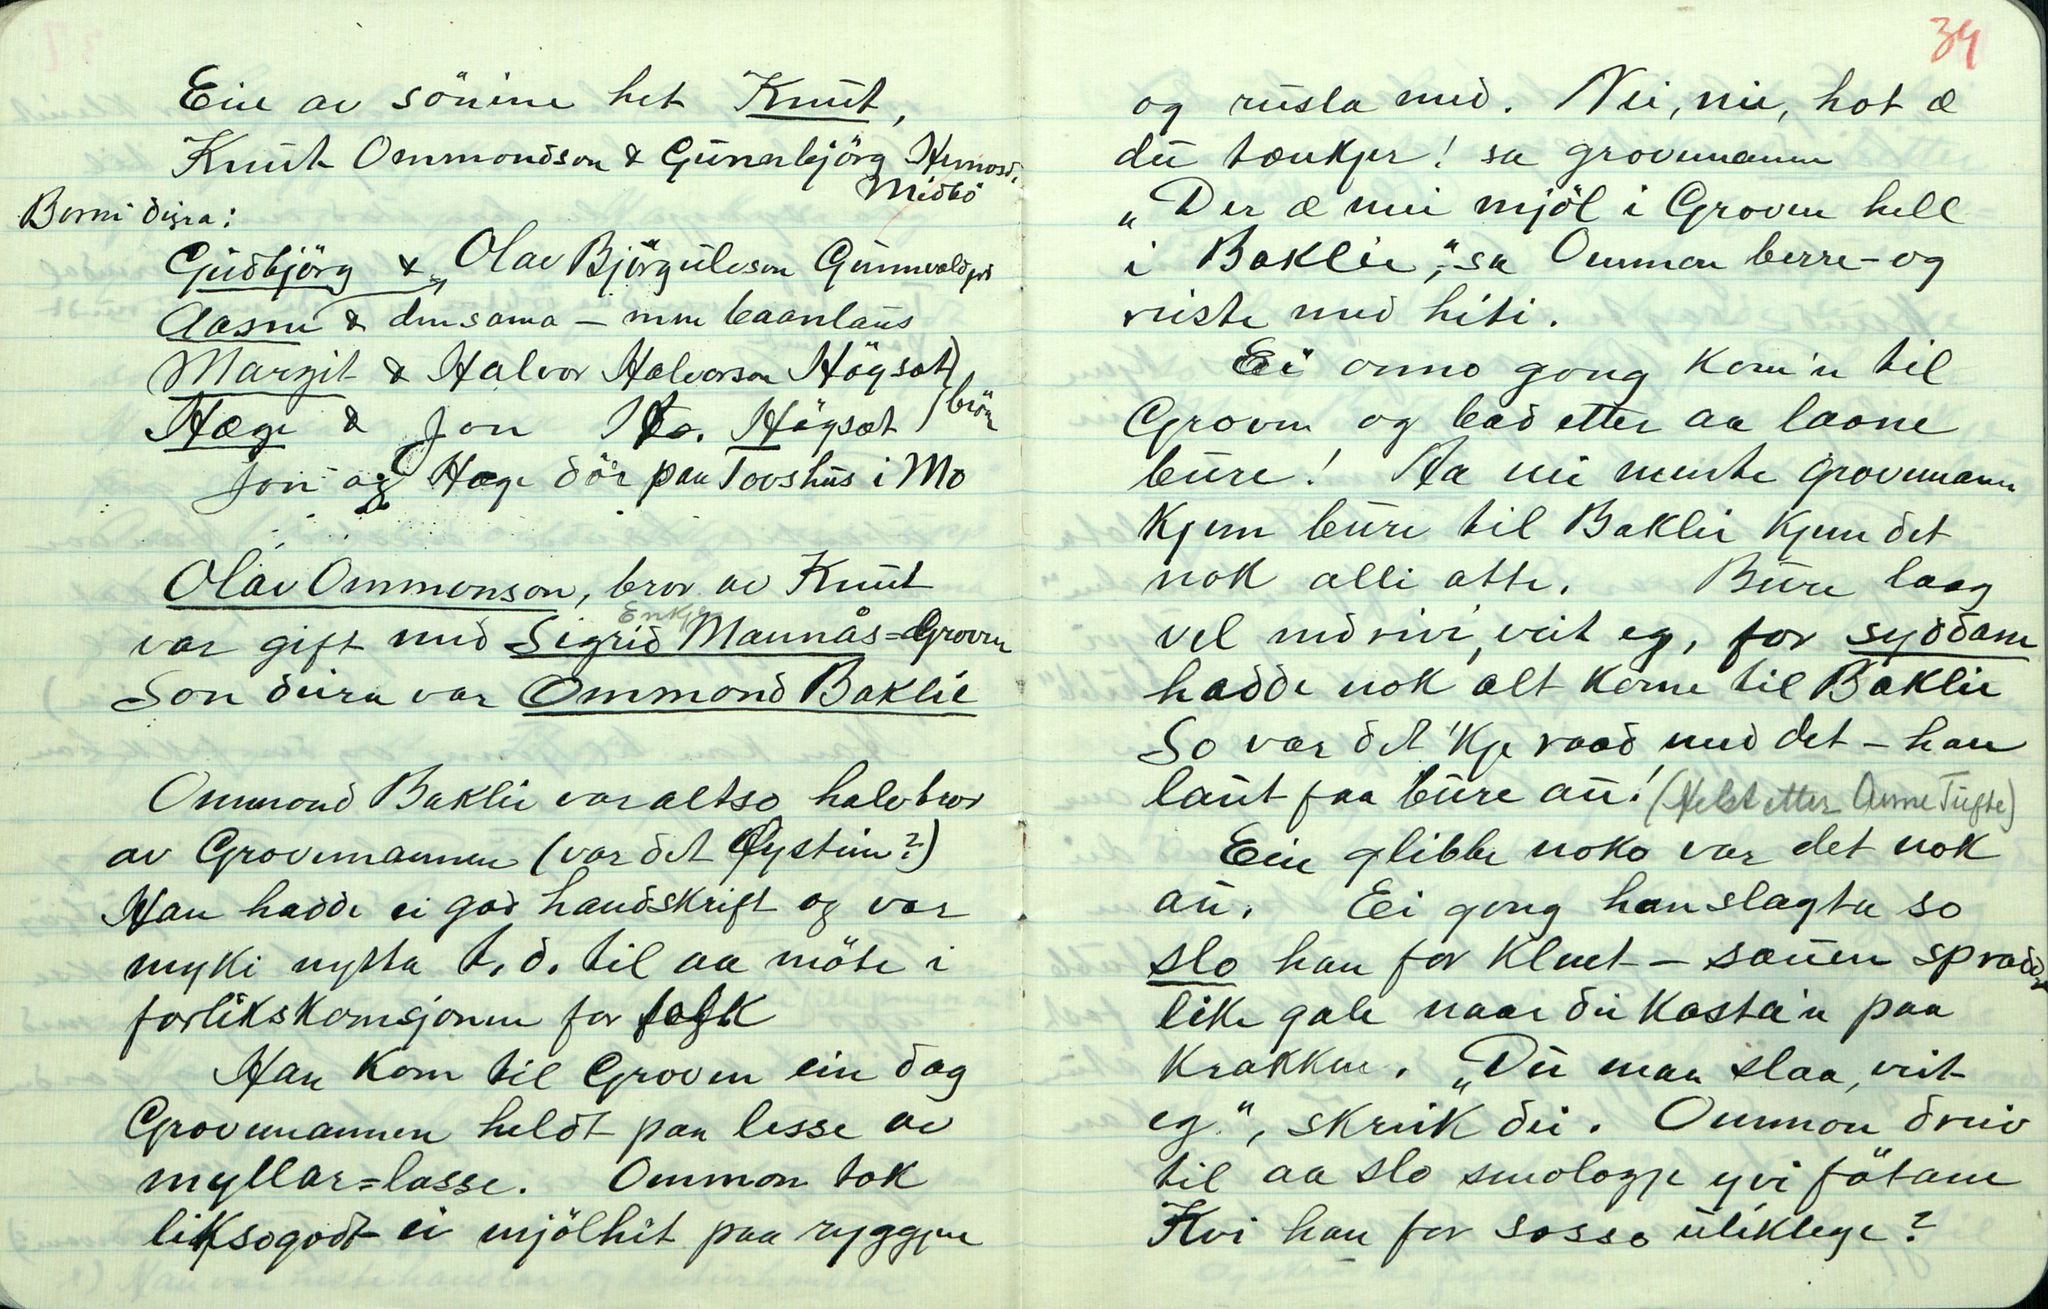 Ein av sönine het Knut,
Knut Ommondson & Gunnbjörg
Midbö
Borni deira:
Gudbjörg & Olav Björgulvson Gunnvaldjor
Aasne & den sama – men baanlaus
Margit & Halvor Halvorson Högsæt
Hæge & Jon Hs. Högsæt
brör
Jon og Hæge dör paa Tovshus i Mo
Olav Ommonson, bror av Knut
Enkje
var gift med Sigrid Mannås=Groven
Son deira var Ommond Baklie
Ommond Baklii var altso halvbror
av Grovemannen (var det Øystein?)
Han hadde ei god handskrift og var
myki nytta t. d. til aa möte i
forlikskomsjonen for folk
Han kom til Groven ein dag
Grovemannen heldt paa lesse av
myllar=lasse. Ommon tok
liksogodt ei mjölhit paa ryggjen
34
og rusla med. Nei, nei, hot æ
du tænkjer! sa grovemannen
„Der æ mei mjöl i Groven hell
i Baklii," sa Ommon berre – og
reiste med hiti.
Ei onno gong kom'n til
Groven og bad etter aa laane
bure! Aa nei mente grovemannen
kjem bure til Baklii kjem det
nok alli atte. Bure laag
vel nedrivi, veit eg, for syddane
hadde nok alt kome til Baklii
So var det 'kje raad med det – han
laut faa bure au! (Helst etter Anne Tufte)
Ein glibbe noko var det nok
au. Ei gong han slagta so
slo han for klent – sauen spradde
like gale naar dei kasta'n paa
krakken. „Du maa slaa, veit
eg", skreik dei. Ommon dreiv
til aa slo smologje yvi fötane
Kvi han for sosso uliklege?